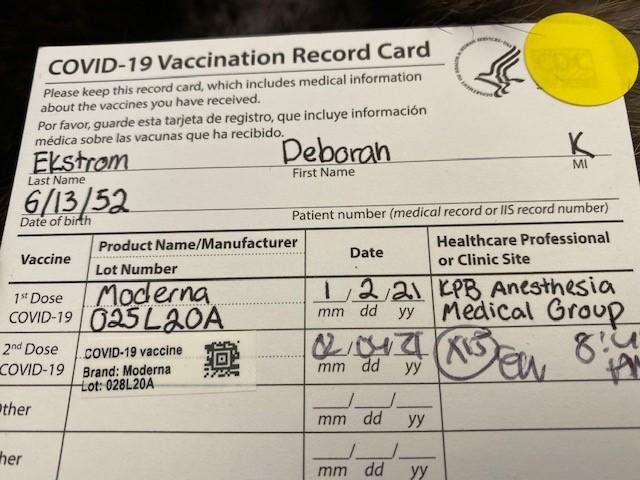 COVID-19 Vaccination Record Card
Please keep this record card, which includes medical information
about the vaccines you have received.
Por favor, guarde esta tarjeta de registro, que incluye información
médica sobre las vacunas que ha recibido.
Ekstrom Deborah K
Last Name First Name MI
6/13/52
Date of birth Patient number (medical record or IIS record number)
Vaccine Product Name/Manufacturer Date Healthcare Professional
Lot Number or Clinic Site
1st Dose Moderna 1/2/21 KPB Anesthesia
COVID-19 025L20A mm dd yy Medical Group
2nd Dose COVID-19 vaccine 02/04/21
COVID-19 Brand: Moderna mm dd yy
Lot: 028L20A
Other
mm dd yy
her
mm dd yy